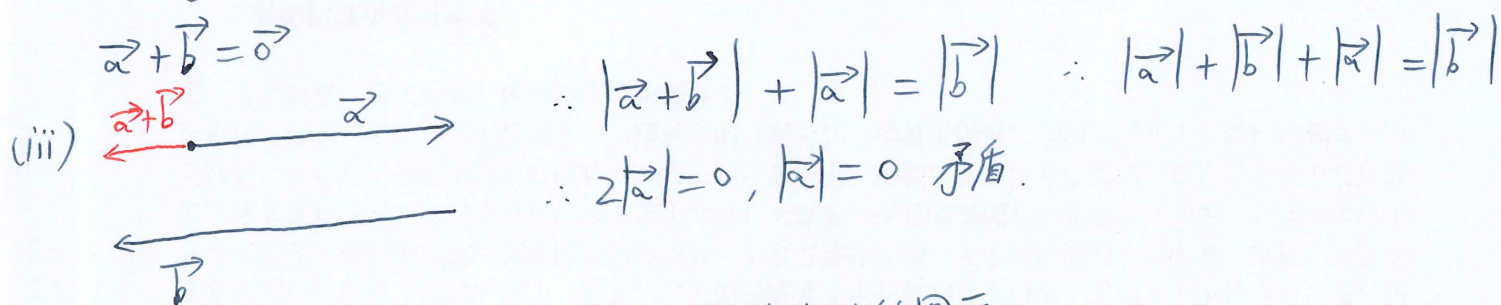 a⃗ + b⃗ = 0⃗
(iii) a⃗+b⃗ a⃗ ∴ |a⃗+b⃗| + |a⃗| = |b⃗| ∴ |a⃗| + |b⃗| + |a⃗| = |b⃗|
∴ 2|a⃗| = 0, |a⃗| = 0 矛盾.
b⃗